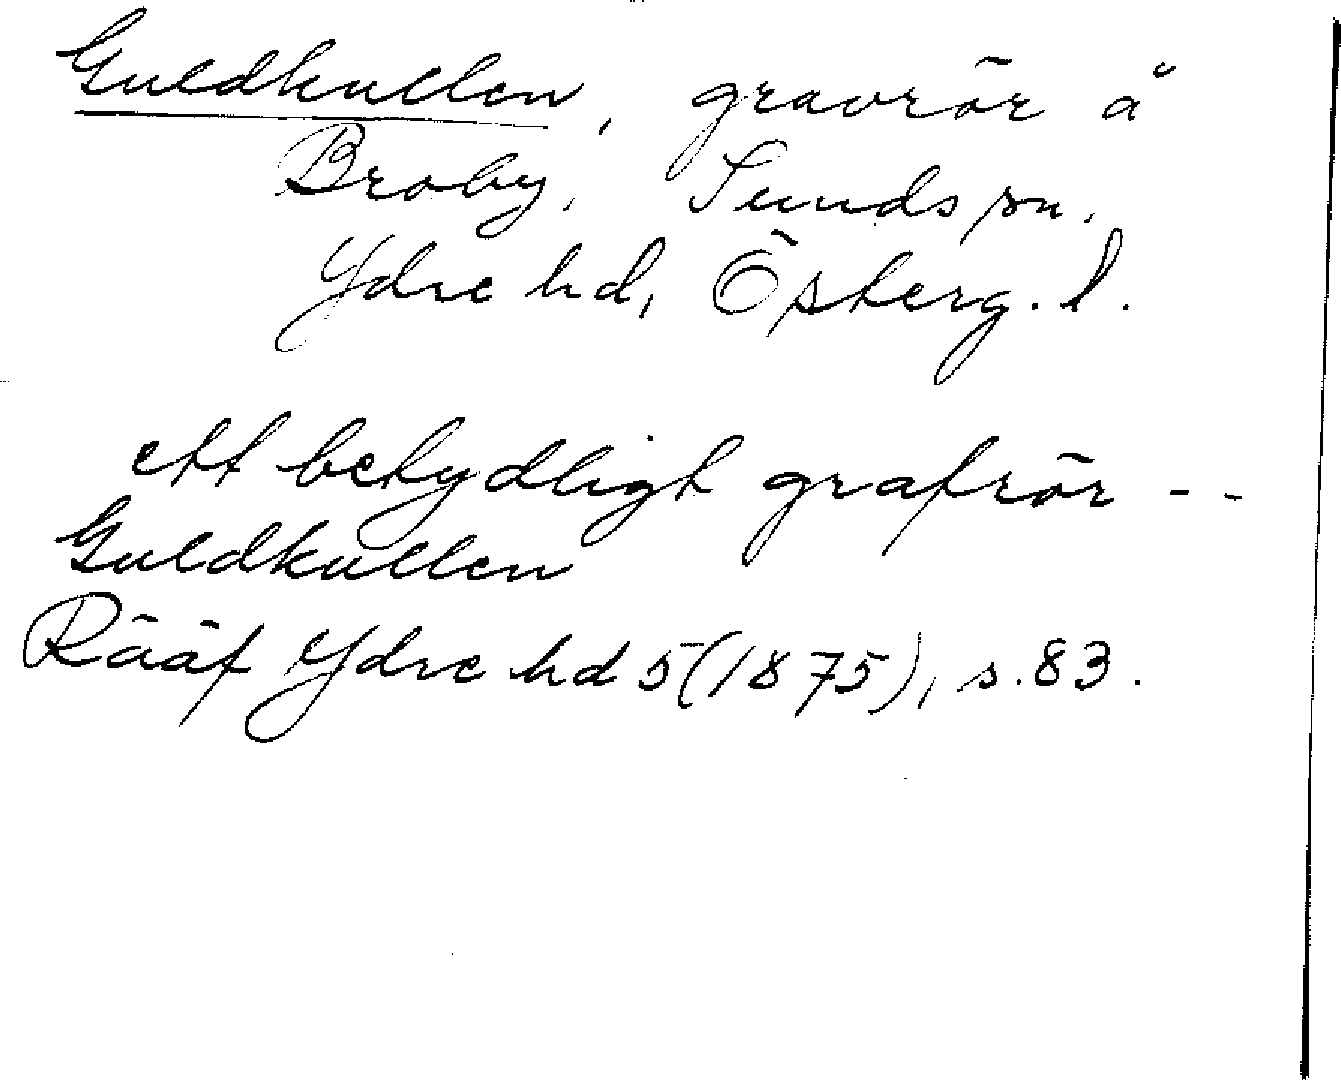 Guldkullen, gravrör å
Broby, Sunds sn.
Ydre hd, Österg. l.
ett betydligt grafrör --
Guldkullen
Rääf Ydre hd 5 (1875), s. 83.